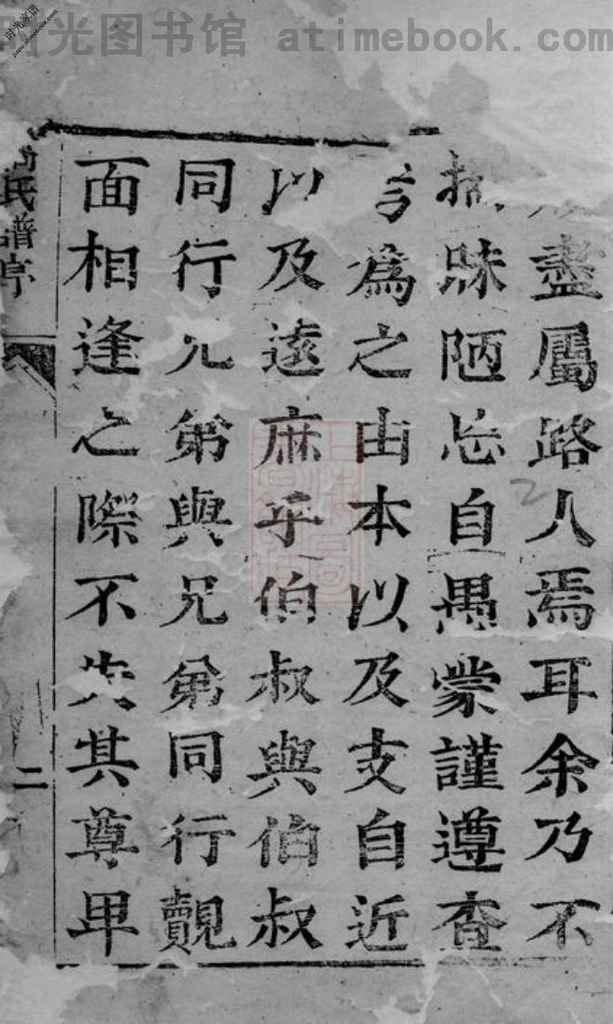 时光图书馆 atimebook.com
盡屬路人焉耳余乃不
揣昧陋忘自愚蒙謹遵查
爲之由本以及支自近
以及遠庶乎伯叔與伯叔
同行兄弟與兄弟同行覿
面相逢之際不失其尊卑
氏譜序
二